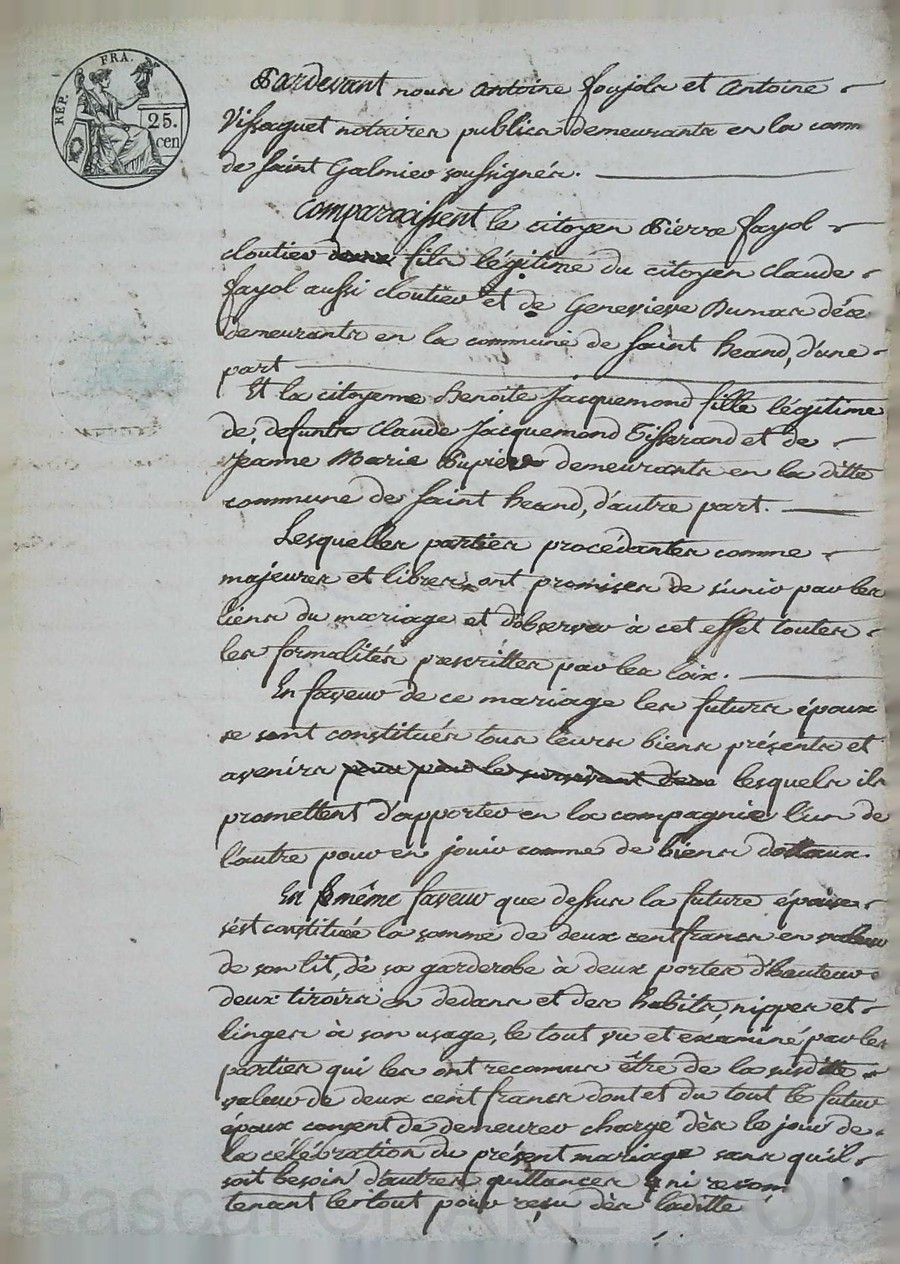 REP. FRA.
25.
cen
Pardevant nous Antoine foujols et Antoine
Vissaguet notaires publics demeurants en la comm
de saint Galmier soussignés.
Comparaissent le citoyen Pierre fayol
cloutier fils légitime du citoyen Claude
fayol aussi cloutier et de Genevieve Dumas
demeurants en la commune de saint heand, d'une
part
Et la citoyenne Benoite Jacquemond fille légitime
de defunts Claude Jacquemond Tisserand et de
Jeanne Marie Pupier demeurants en la ditte
commune de saint heand, d'autre part.
Lesquelles parties procédantes comme
majeures et libres, ont promises de s'unir par les
liens du mariage et d'observer à cet effet toutes
les formalités prescrittes par les loix.
En faveur de ce mariage les futurs époux
se sont constitués tous leurs biens présents et
avenirs lesquels ils
promettent d'apporter en la compagnie l'un de
l'autre pour en jouir comme de biens dottaux.
En même faveur que dessus la future épouse
s'est constituée la somme de deux cent francs en valeur
de son lit, de sa garderobe à deux portes d'hauteur
deux tiroirs en dedans et des habits, nippes et
linges à son usage, le tout vu et examiné par les
parties qui les ont reconnus être de la susditte
valeur de deux cent francs dont et du tout le futur
époux consent de demeurer chargé dès le jour de
la célébration du présent mariage sans qu'il
soit besoin d'autres quittances
tenant le tout pour reçu dès laditte
Pascal CHARETRON